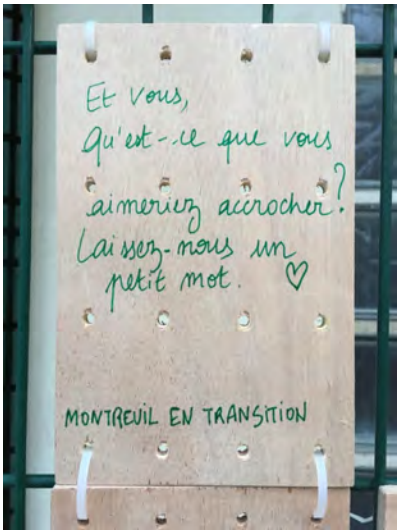 Et vous,
Qu'est-ce que vous
aimeriez accrocher?
Laissez-nous un
petit mot. ♡
MONTREUIL EN TRANSITION